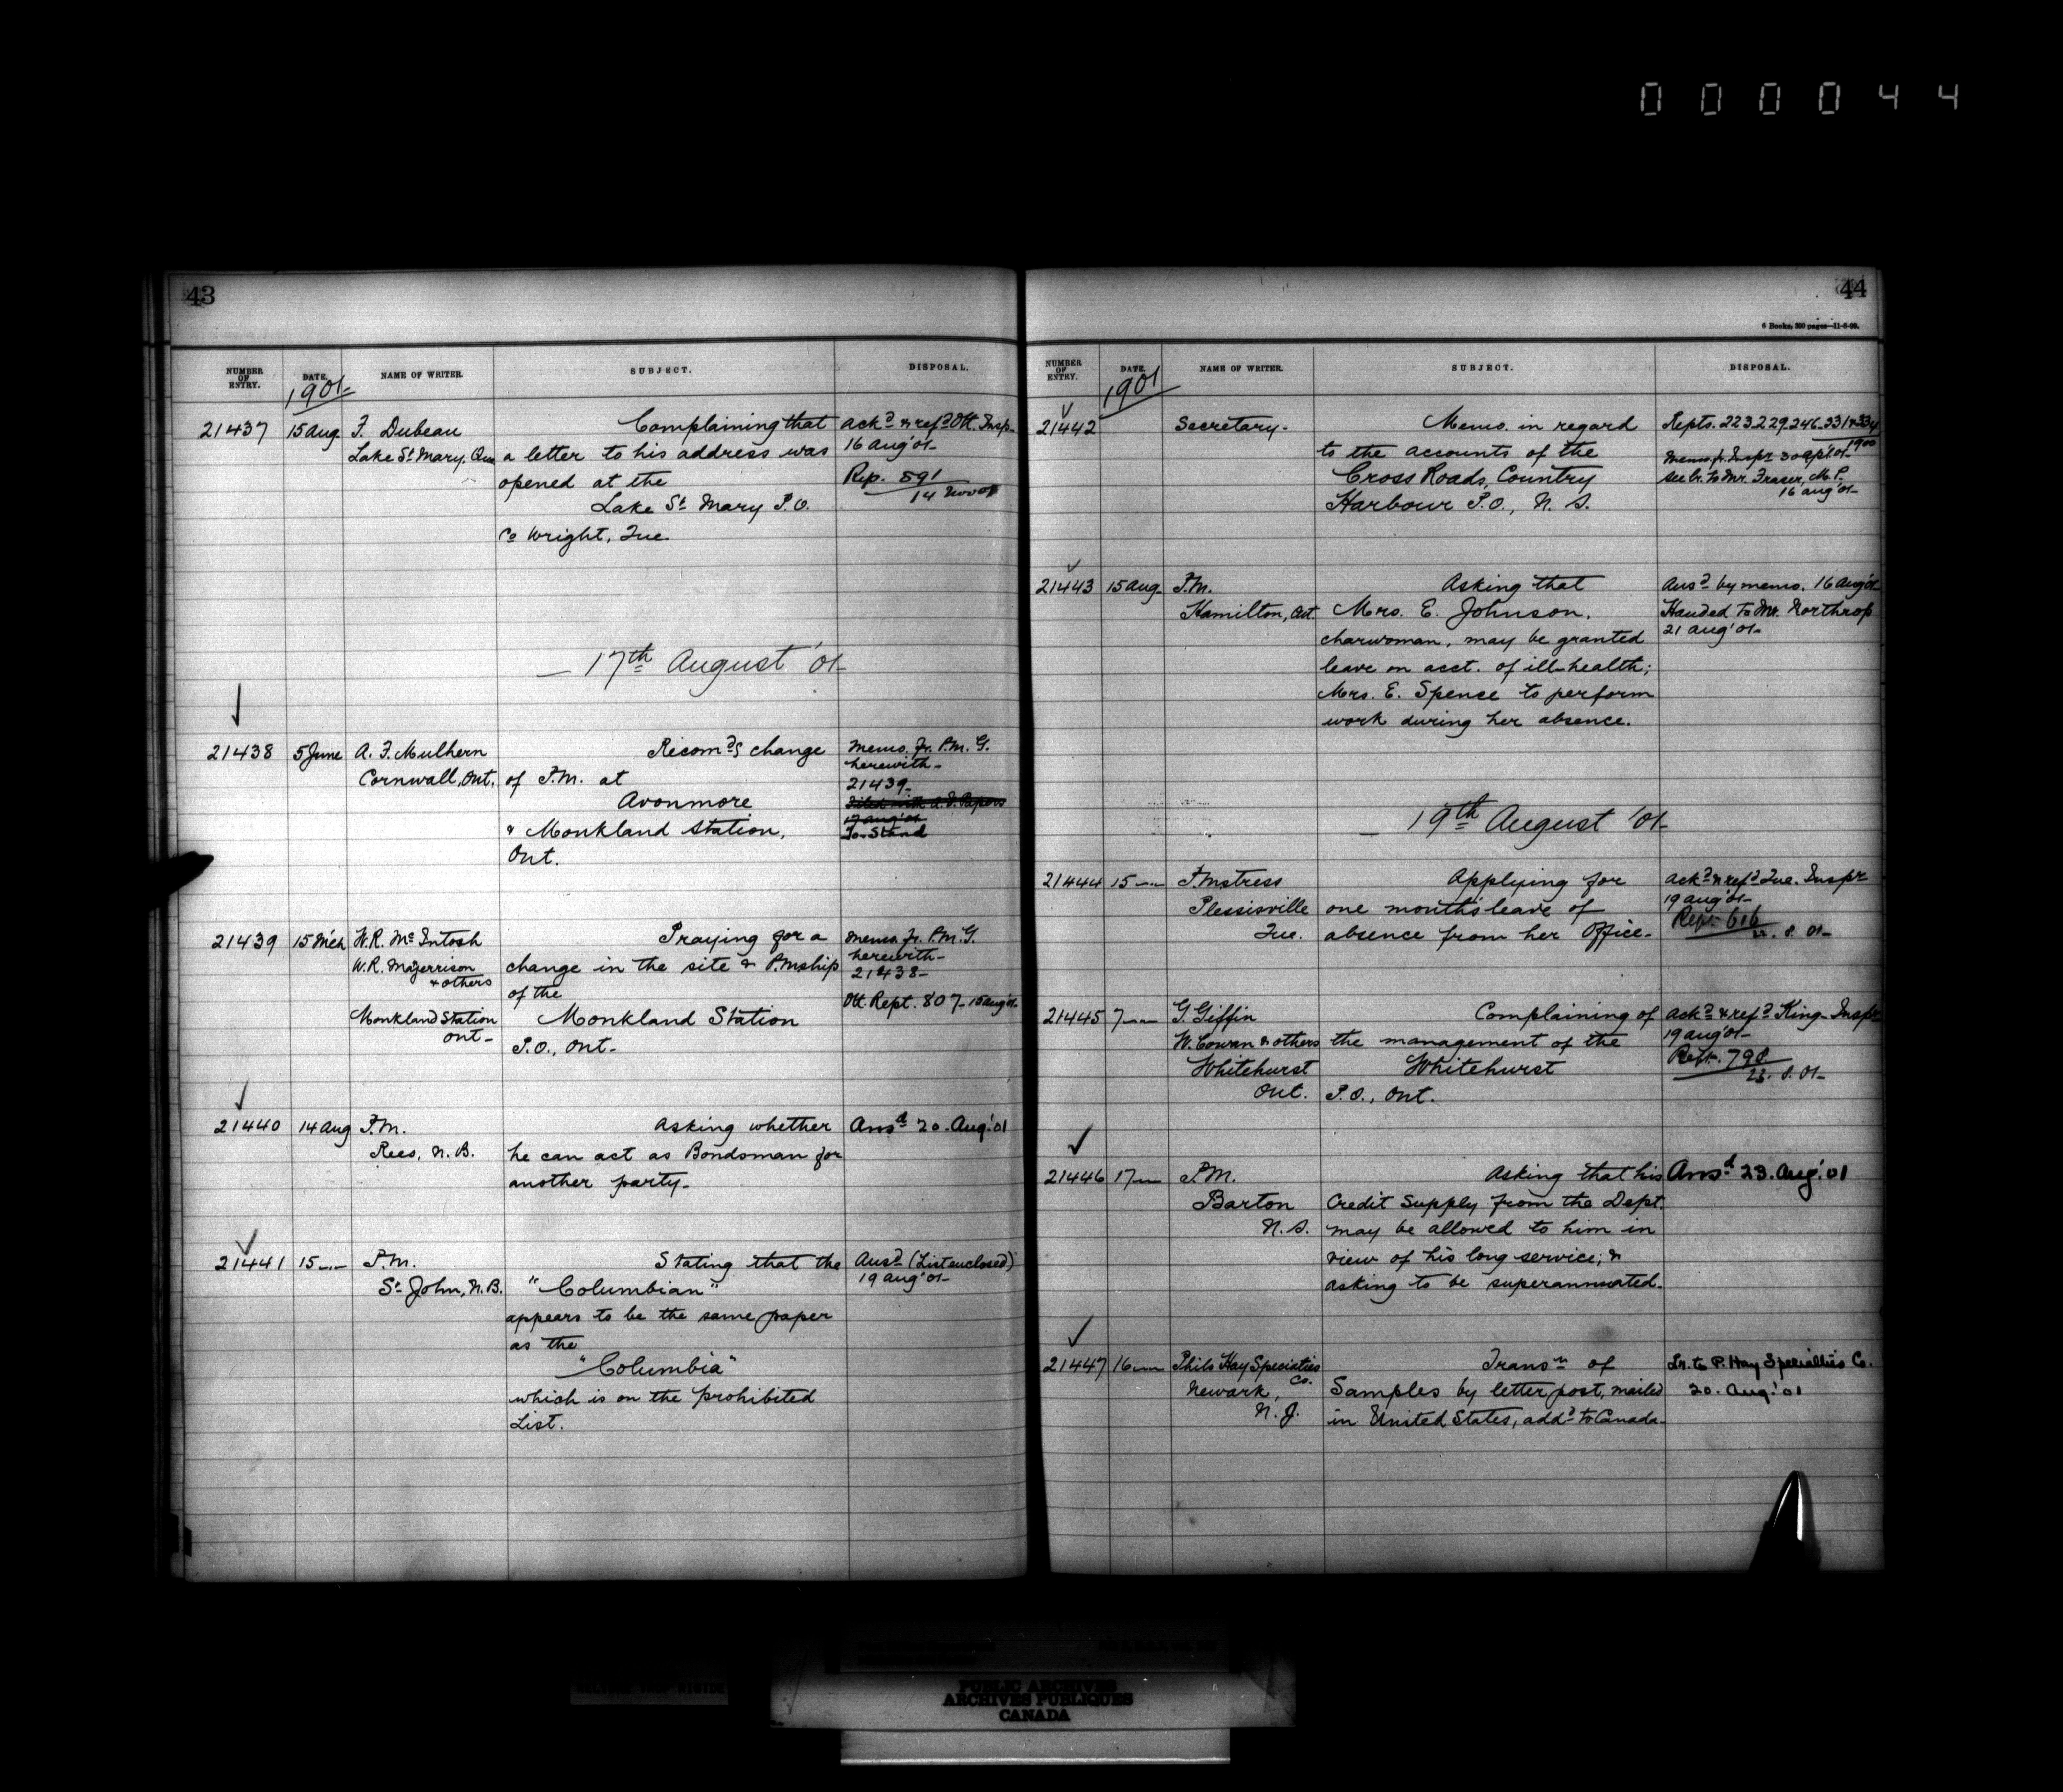 000044
43
NUMBER OF ENTRY. DATE. NAME OF WRITER. SUBJECT. DISPOSAL.
1901-
21437 15 Aug. F. Dubeau Complaining that Ackd & refd Ott. Insp.
Lake St Mary, Que a letter to his address was 16 Aug '01-
opened at the Rep. 591
Lake St Mary P.O. 14 Nov 01
Co Wright, Que.
- 17th August '01-
21438 5 June A. F. Mulhern Recomds change Memo. fr. P.M.G.
Cornwall, Ont. of P.M. at herewith-
Avonmore 21439-
& Monkland Station, 17 Aug '01
Ont. To Stand
21439 15 Mch W.R. McIntosh Praying for a Memo fr. P.M.G.
W.R. Majerrison change in the site & P.Mship herewith-
& others of the 21438-
Monkland Station Monkland Station Ott. Rept. 807-15 Aug '01-
Ont- P.O., Ont-
21440 14 Aug P.M. Asking whether Ansd 20. Aug. '01
Rees, N.B. he can act as Bondsman for
another party-
21441 15 P.M. Stating that the Ansd (List enclosed)
St John, N.B. "Columbian" 19 Aug '01-
appears to be the same paper
as the
"Columbia"
which is on the prohibited
List.
44
6 Books, 500 pages-11-8-99.
NUMBER OF ENTRY. DATE. NAME OF WRITER. SUBJECT. DISPOSAL.
1901
21442 Secretary- Memo. in regard Repts. 223.229.246.331 & 334
to the accounts of the 1900
Cross Roads, Country Memo. fr. Inspr 30 Ap '01-
Harbour P.O., N.S. See lr. to Mr. Fraser, M.P.
16 Aug '01-
21443 15 Aug- P.M. Asking that Ansd by memo. 16 Aug '01-
Hamilton, Ont. Mrs. E. Johnson, Handed to Mr. Northrop
charwoman, may be granted 21 Aug '01-
leave on acct. of ill-health;
Mrs. E. Spence to perform
work during her absence.
- 19th August '01-
21444 15 P.Mstress Applying for Ackd & refd Que. Inspr
Plessisville one month's leave of 19 Aug '01-
Que. absence from her Office- Rept. 616
22. 8. 01-
21445 7 G. Giffin Complaining of Ackd & refd King- Inspr
W. Cowan & others the management of the 19 Aug '01-
Whitehurst Whitehurst Rept. 798
Ont. P.O., Ont. 23. 8. 01-
21446 17 P.M. Asking that his Ansd 23. Aug. '01
Barton Credit Supply from the Dept.
N.S. may be allowed to him in
view of his long service; &
asking to be superannuated-
21447 16 Phils Hay Specialties Transn of Lr. to P. Hay Specialties Co.
Co.
Newark, Samples by letter post, mailed 20. Aug. '01
N.J. in United States, addd to Canada-
PUBLIC ARCHIVES
ARCHIVES PUBLIQUES
CANADA